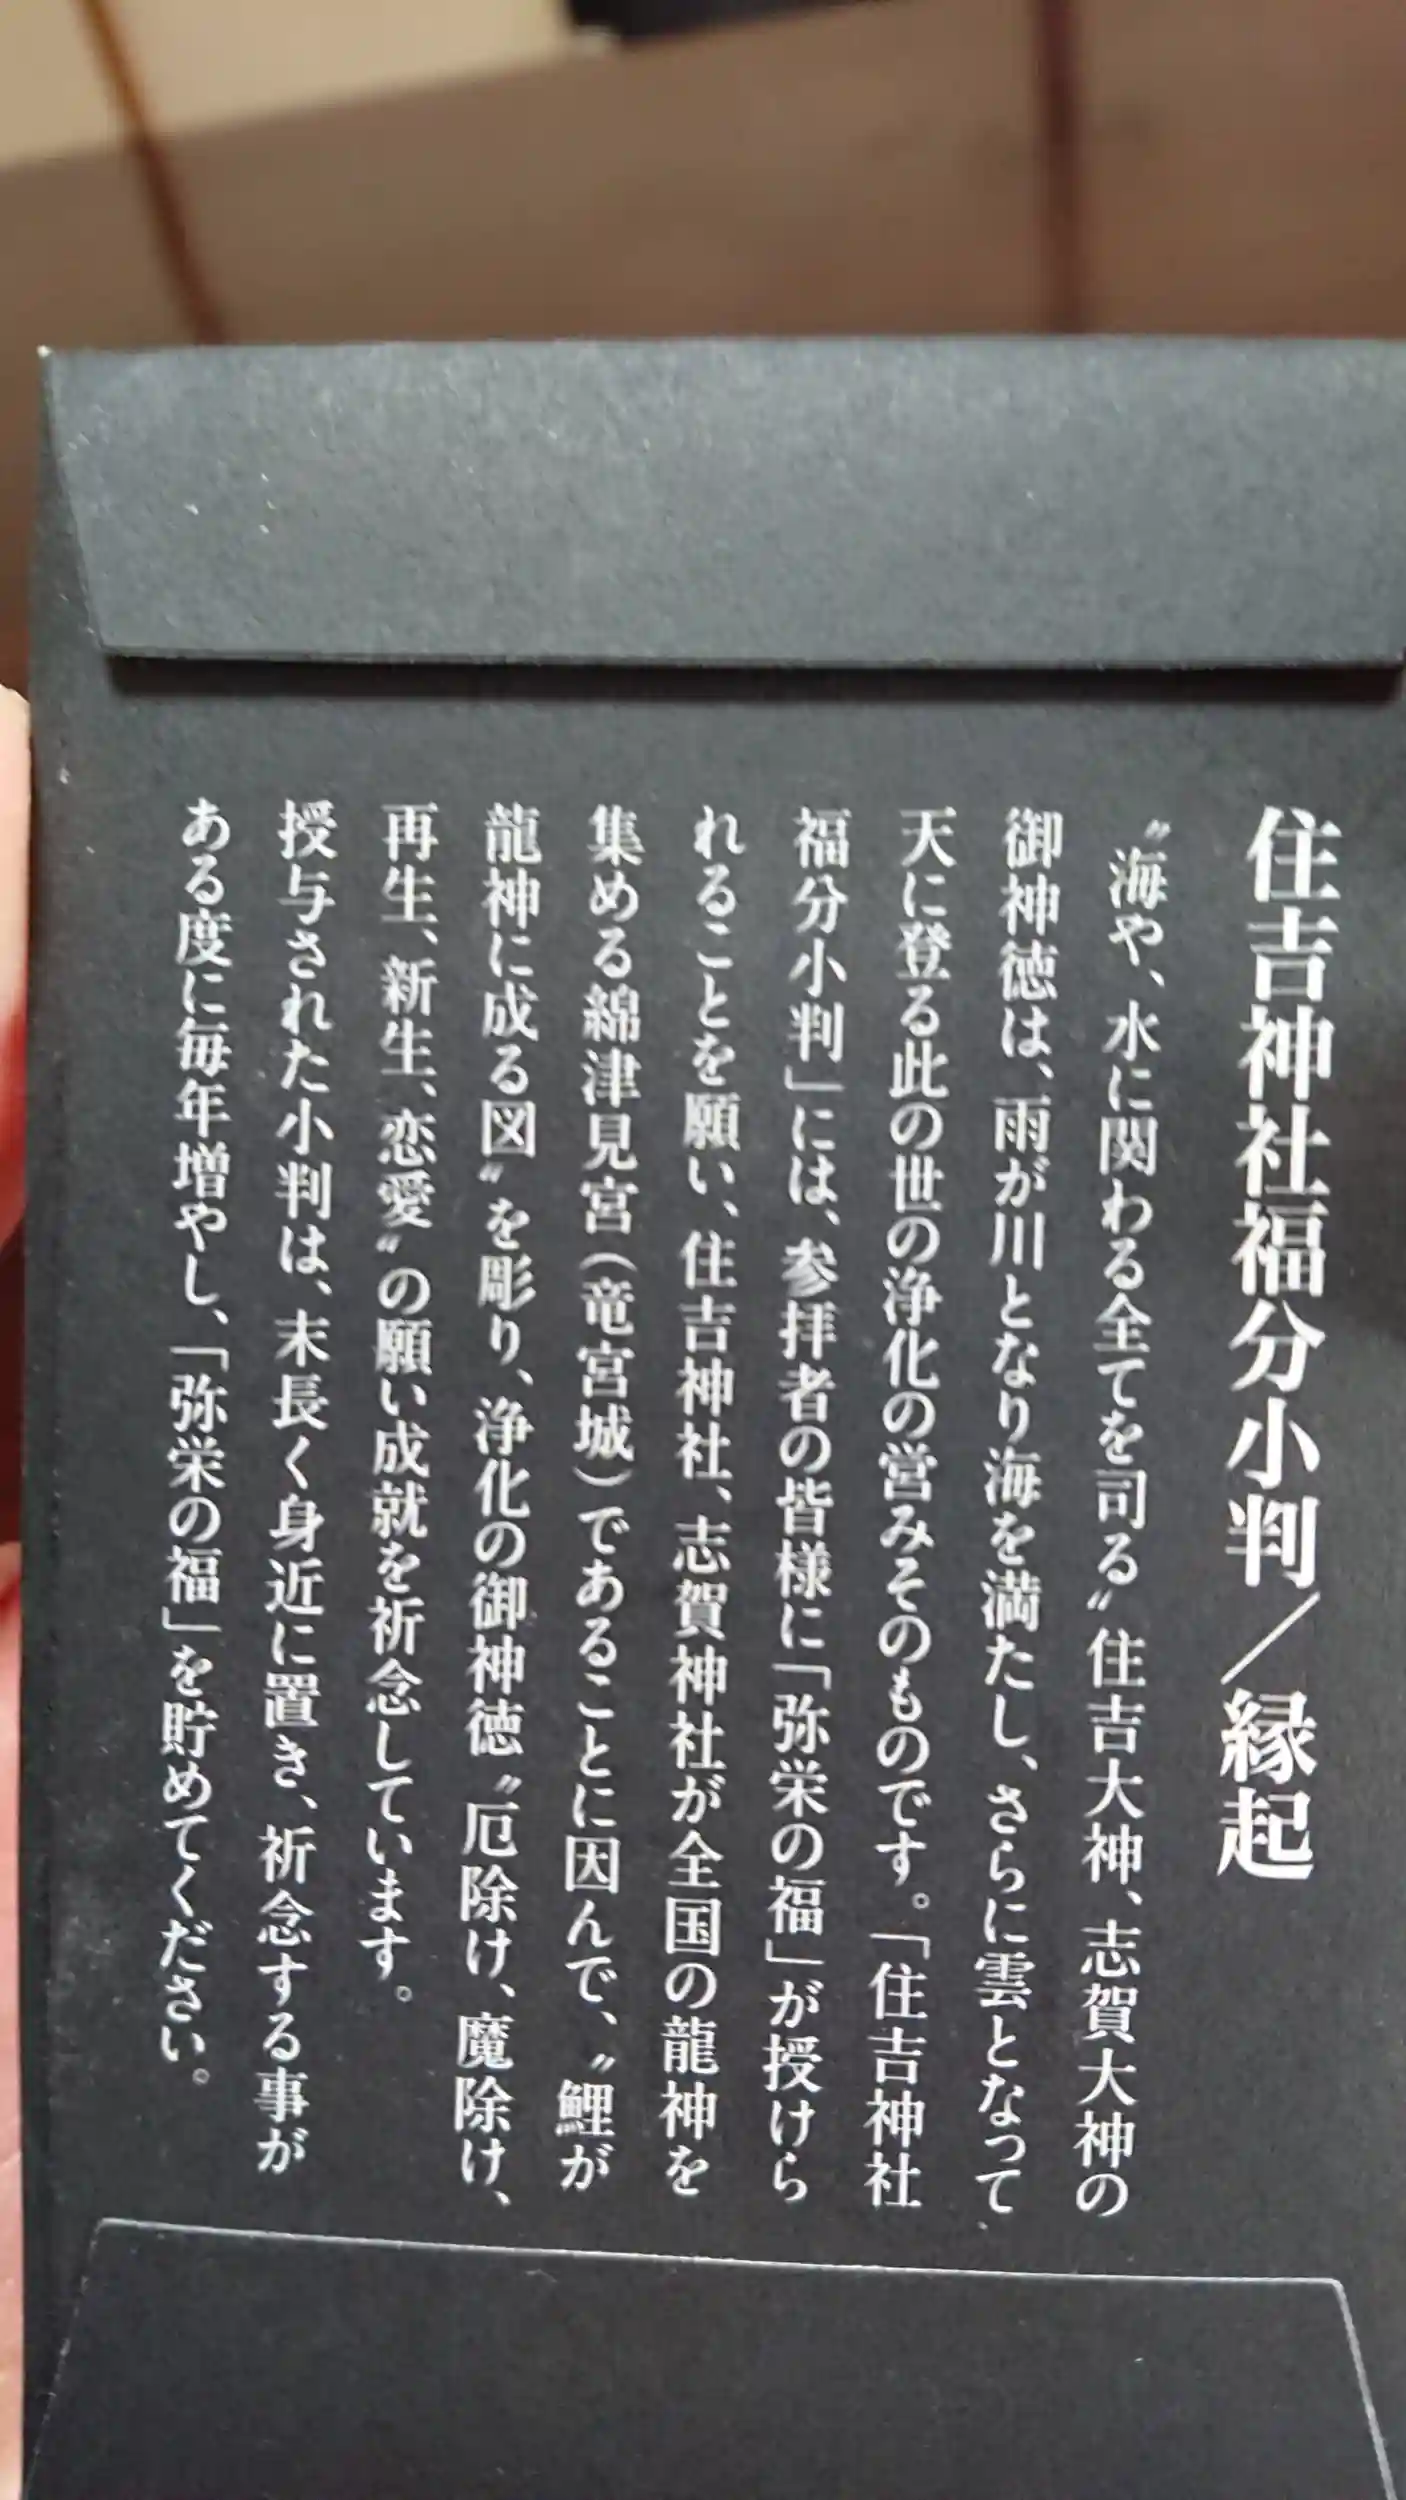 住吉神社福分小判/縁起
〝海や、水に関わる全てを司る〟住吉大神、志賀大神の
御神徳は、雨が川となり海を満たし、さらに雲となって
天に登る此の世の浄化の営みそのものです。「住吉神社
福分小判」には、参拝者の皆様に「弥栄の福」が授けら
れることを願い、住吉神社、志賀神社が全国の龍神を
集める綿津見宮(竜宮城)であることに因んで、〝鯉が
龍神に成る図〟を彫り、浄化の御神徳〝厄除け、魔除け、
再生、新生、恋愛〟の願い成就を祈念しています。
授与された小判は、末長く身近に置き、祈念する事が
ある度に毎年増やし、「弥栄の福」を貯めてください。